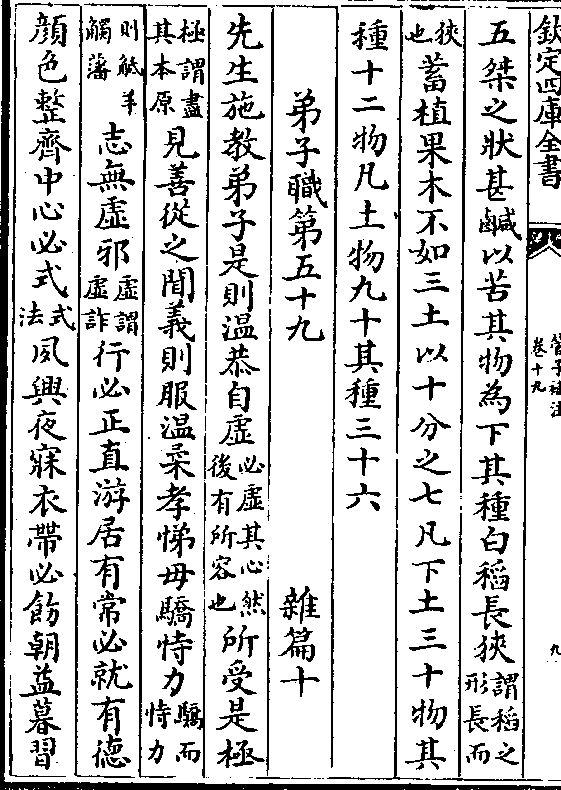 欽定四庫全書
管子補注
卷十九
九
五桀之狀甚鹹以苦其物為下其種白稻長狹謂稻之形長而
狹也蓄植果木不如三土以十分之七凡下土三十物其
種十二物凡土物九十其種三十六
弟子職第五十九 雜篇十
先生施教弟子是則温恭自虛必虛其心然後有所容也所受是極
極謂盡其本原見善從之聞義則服温柔孝悌毋驕恃力驕而恃力
則觝羊觸藩志無虛邪虛謂虛詐行必正直游居有常必就有德
顔色整齊中心必式式法夙興夜寐衣帶必飭朝益暮習